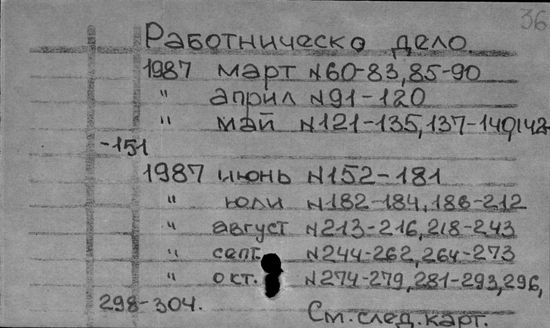 36
Работническо дело
1987 март N60-83,85-90
" април N91-120
" май N121-135,137-140,142-
-151
1987 июнь N152-181
" юли N182-184,186-212
" август N213-216,218-243
" септ. N244-262,264-273
" окт. N274-279,281-293,296,
298-304. См.след.карт.